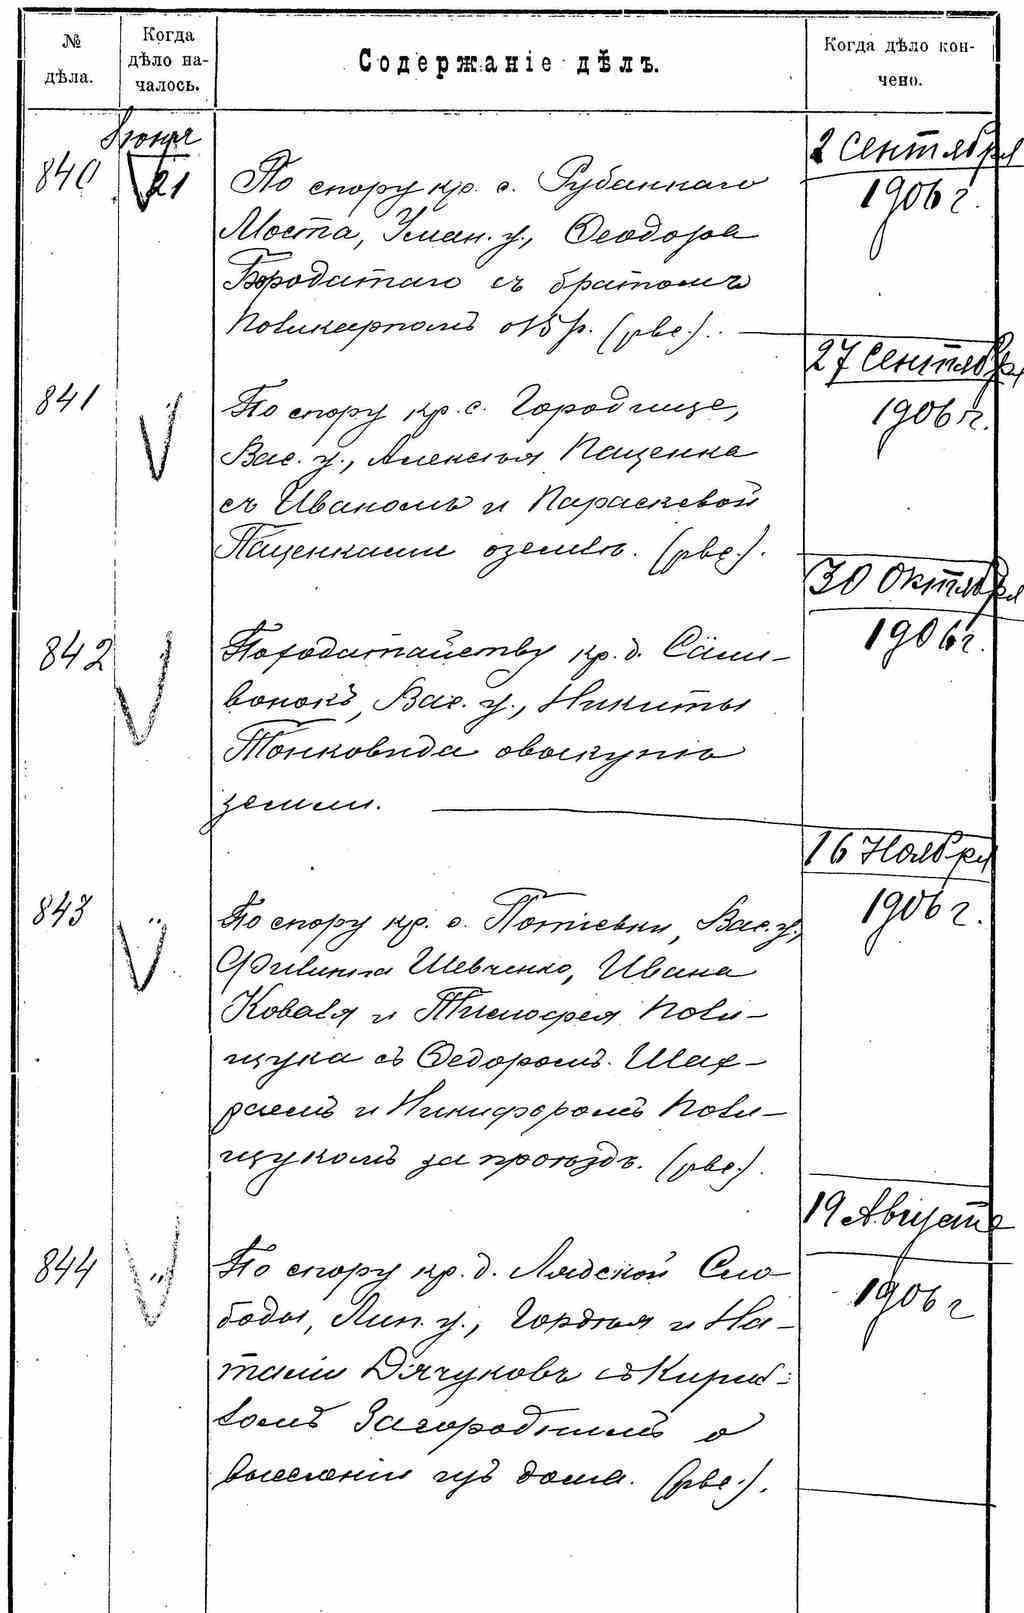 № дѣла.
Когда дѣло началось.
Содержаніе дѣлъ.
Когда дѣло кончено.
Іюня
840
21
По спору кр. с. Рубаннаго
Моста, Уман. у., Ѳеодора
Бородатаго съ братомъ
Поликарпомъ о 15 р. (рве.).
2 Сентября
1906 г.
841
По спору кр. с. Городище,
Вас. у., Алексѣя Пащенка
съ Иваномъ и Параскевой
Пащенками о землѣ. (рве.).
27 Сентября
1906 г.
842
По ходатайству кр. д.
Вас. у., Никиты
Тонковида о выкупѣ
земли.
30 Октября
1906 г.
843
По спору кр. с. Потіевки, Вас. у.,
Филиппа Шевченко, Ивана
Коваля и Тимофея Поли-
щука съ Ѳедоромъ Шах-
раемъ и Никифоромъ Поли-
щукомъ за проѣздъ. (рве.).
16 Ноября
1906 г.
844
По спору кр. д. Лядской Сло
боды, Лип. у., Гордѣя и На-
таліи Дячуковъ съ Кирил-
ломъ Загороднимъ о
выселеніи изъ дома. (рве.).
19 Августа
1906 г